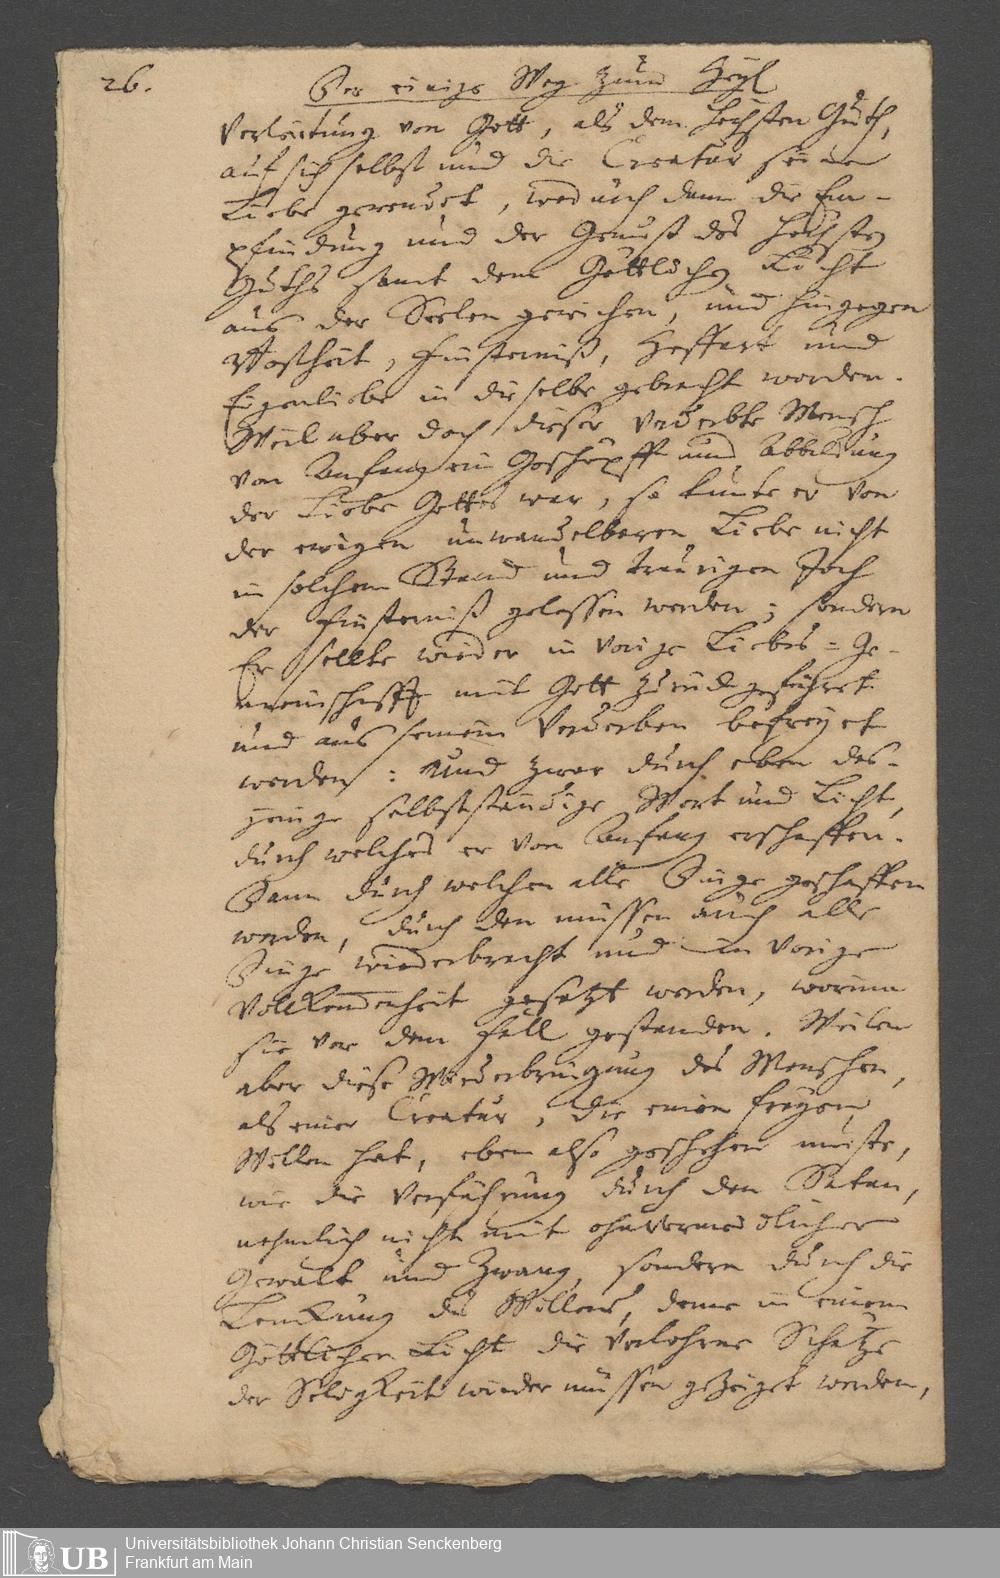 26. Der einige Weg zum Heyl
Verleitung von Gott, als dem höchsten Guth,
auf sich selbst und die Creatur seine
Liebe gewendet, wodurch dann die Em-
pfindung und der Genuß des höchsten
Guths samt dem Göttlichen Licht
aus der Seelen gewichen, und hingegen
Boßheit, Finsterniß, Hoffart und
Eigenliebe in dieselbe gebracht worden.
Weil aber doch dieser verderbte Mensch
von Anfang ein Geschöpff und Abbildung
der Liebe Gottes war, so kunte er von
der ewigen unwandelbaren Liebe nicht
in solchem Stand und traurigen Joch
der Finsterniß gelassen werden; sondern
Er sollte wieder in vorige Liebes-Ge-
meinschafft mit Gott zurück geführet
und aus seinem Verderben befreyet
werden: Und zwar durch eben das-
jenige selbstständige Wort und Licht,
durch welches er von Anfang erschaffen.
Dann durch welchen alle Dinge geschaffen
worden, durch den müssen auch alle
Dinge wiederbracht und in vorige
Vollkommenheit gesetzt werden, worinn
sie vor dem Fall gestanden. Weilen
aber diese Wiederbringung des Menschen,
als einer Creatur, die einen freyen
Willen hat, eben also geschehen muste,
wie die Verführung durch den Satan,
nehmlich nicht mit ohnvermeidlicher
Gewalt und Zwang, sondern durch die
Lenckung des Willens, deme in einem
Göttlichen Licht die verlohrne Schätze
der Seligkeit wieder müssen gezeiget werden,
UB Universitätsbibliothek Johann Christian Senckenberg
Frankfurt am Main